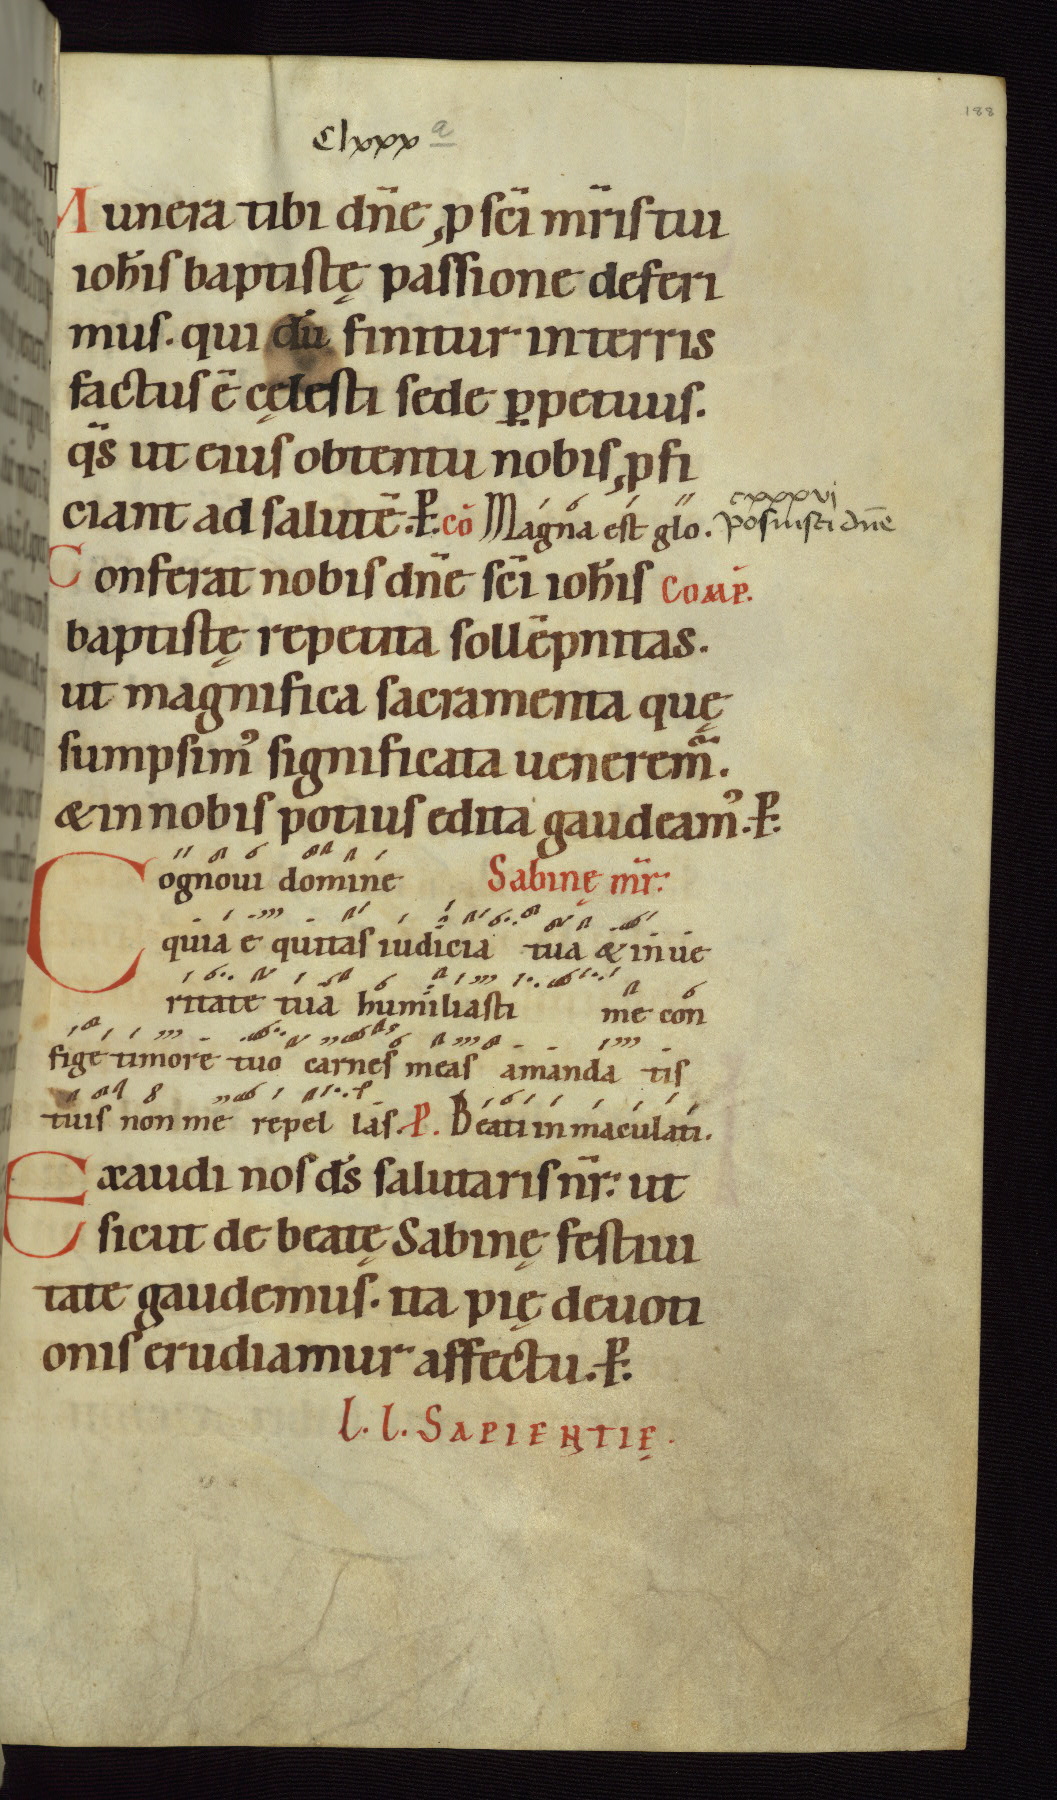 188
Clxxx a
Munera tibi dn̄e, p sc̄i mr̄is tui
ioh̄is baptistę passione deferi
mus. qui dū finitur in terris
factus ē cęlesti sede ꝑpetuus.
q̄s ut eius obtentu nobis, pfi
ciant ad salutē. P. cō Magna est glo. cxxxvi
posuisti dn̄e
Conferat nobis dn̄e sc̄i ioh̄is Comp̄.
baptistę repetita sollēpnitas.
ut magnifica sacramenta quę
sumpsim᷒ significata ueneremr̄.
& in nobis potius edita gaudeam᷒. P.
Cognoui domine Sabinę mr̄.
quia e quitas iudicia tua & in ue
ritate tua humiliasti me con
fige timore tuo carnes meas amanda tis
tuis non me repel las. P. Beati inmaculati.
Exaudi nos ds̄ salutaris nr̄. ut
sicut de beatę Sabinę festiui
tate gaudemus. ita pię deuoti
onis erudiamur affectu. P.
L. l. SAPIENTIĘ.